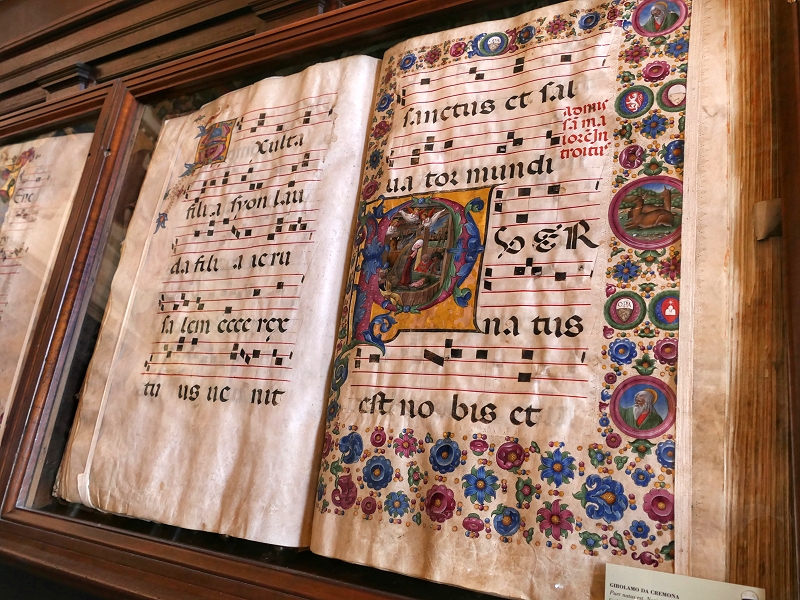 Exulta
fili a syon lau
da fili a ieru
sa lem ecce rex
tu us ue nit
sanctus et sal
ua tor mundi
troitus
PUER
na tus
est no bis et
GIROLAMO DA CREMONA
Puer natus est,